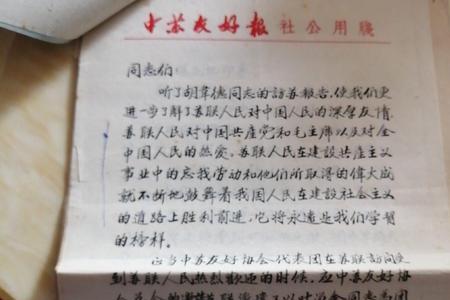 中苏友好報社公用牋
同志们:
听了胡韋德同志的訪苏報告,使我们更
進一步了解了苏联人民对中国人民的深厚友情,
苏联人民对中国共産党和毛主席以及对全
中国人民的热爱。苏联人民在建設共産主义
事业中的忘我劳动和他们所取得的偉大成
就不断地鼓舞着我国人民在建設社会主义
的道路上胜利前進,它将永遠是我们学習
的榜样。
应当中苏友好协会代表团在苏联訪问受
到苏联人民热烈歡迎的时候,应中苏友好协